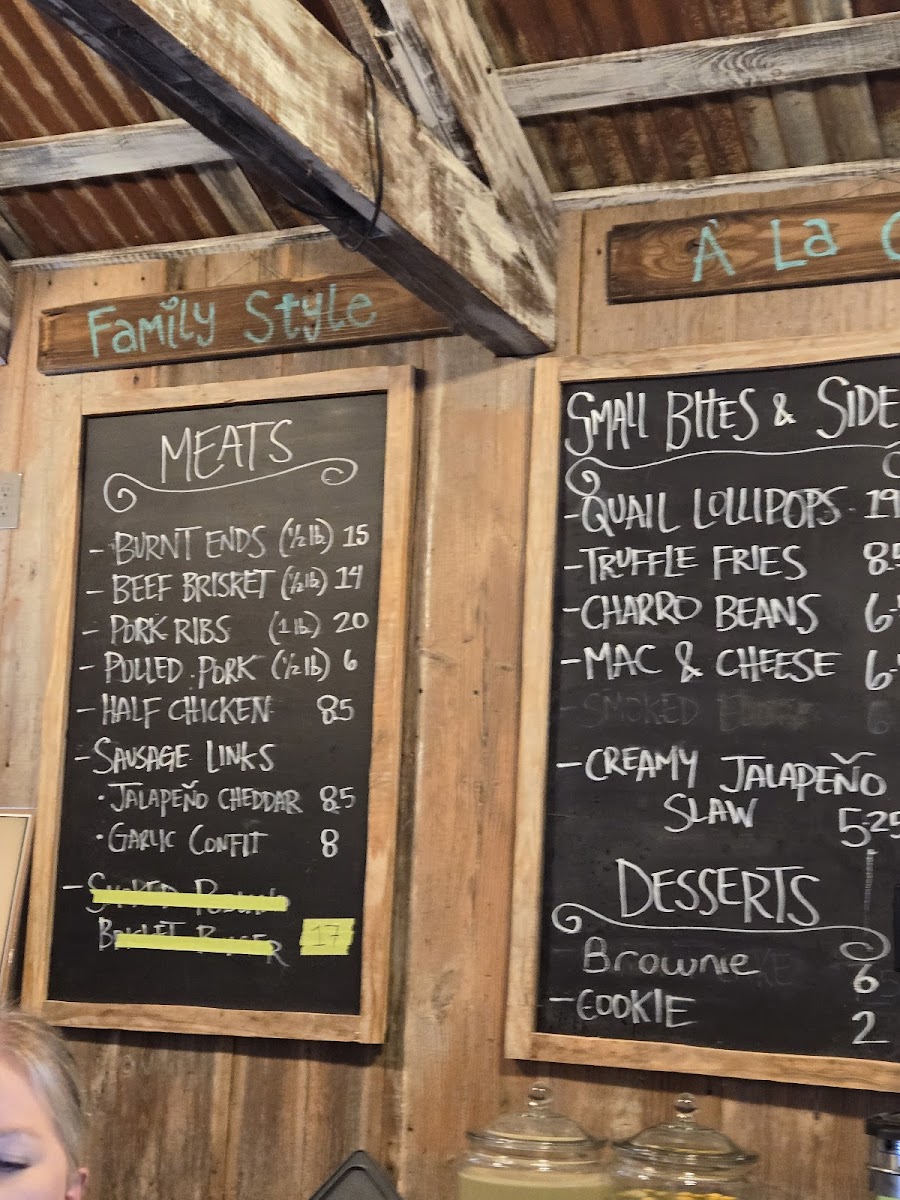 Family Style
MEATS
- BURNT ENDS (½ lb) 15
- BEEF BRISKET (½ lb) 14
- PORK RIBS (1 lb) 20
- PULLED PORK (½ lb) 6
- HALF CHICKEN 85
- SAUSAGE LINKS
· JALAPEÑO CHEDDAR 85
· GARLIC CONFIT 8
17
À La
SMALL BITES & SIDE
- QUAIL LOLLIPOPS 19
- TRUFFLE FRIES 8.5
- CHARRO BEANS 6
- MAC & CHEESE 6
SMOKED 6
- CREAMY JALAPEÑO
SLAW 5.25
DESSERTS
Brownie 6
- COOKIE 2